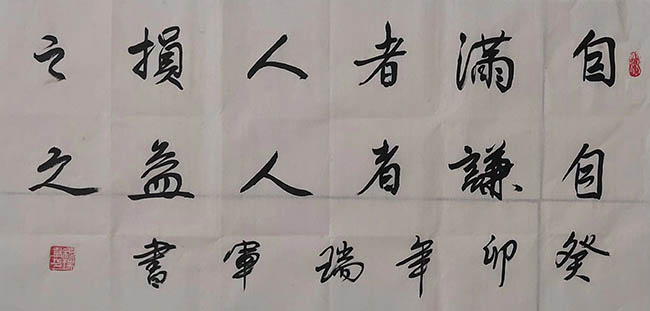 自滿者人損之
自謙者人益之
癸卯年瑞軍書